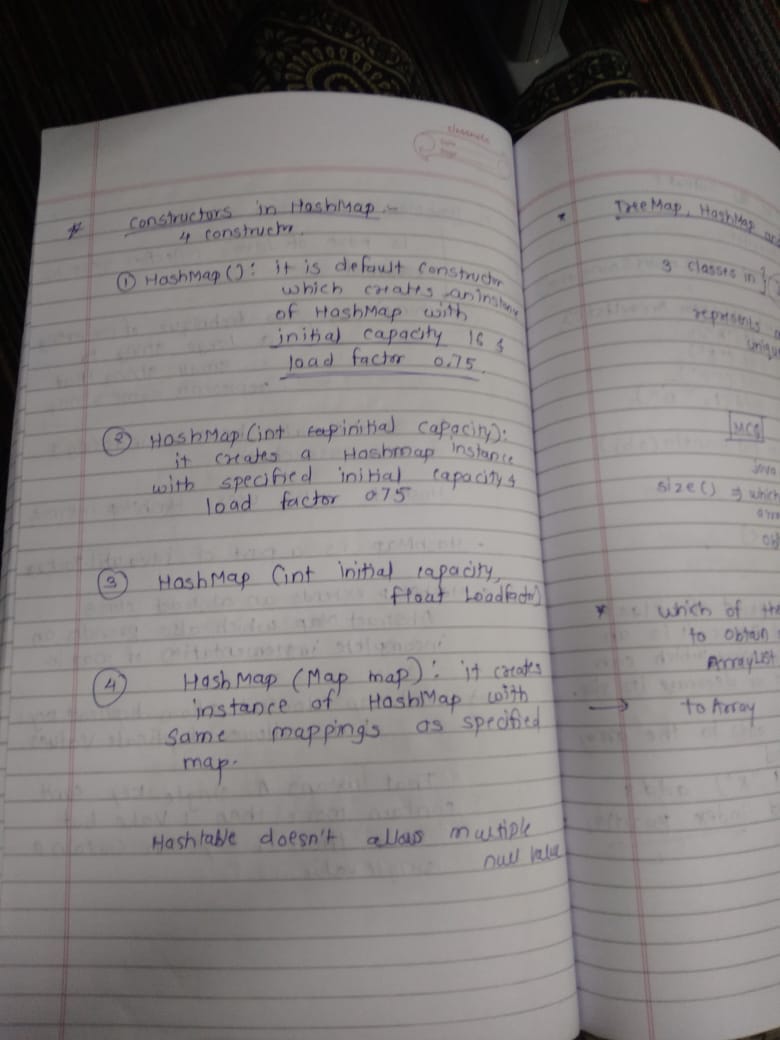 classmate
Date
Page
* Constructors in HashMap :-
4 constructr.
① HashMap(): it is default constructor
which creates an instance
of HashMap with
initial capacity 16 &
load factor 0.75.
② HashMap(int initial capacity):
it creates a Hashmap instance
with specified initial capacity &
load factor 0.75
③ HashMap (int initial capacity,
float Loadfactor)
④ HashMap (Map map): it creates
instance of HashMap with
same mapping's as specified
map.
Hashtable doesn't allows multiple
null value
* TreeMap, HashMap an
3 classes in
represents
uniqu
MCQ
Java
size() which
arra
ob
* which of the
to obtain
ArrayList
→ to Array